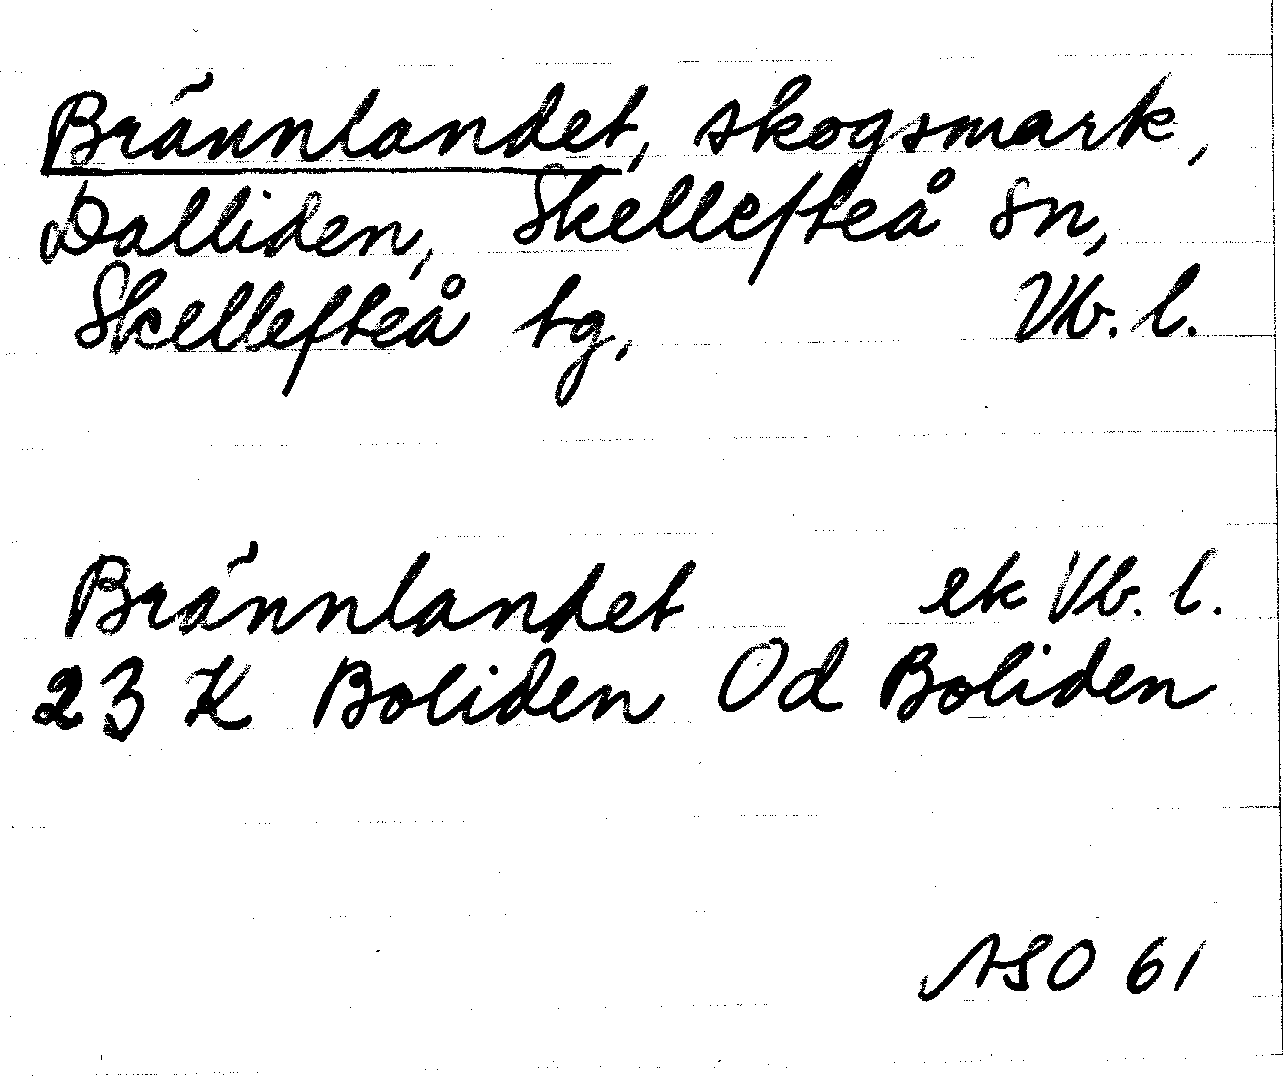 Brännlandet, skogsmark,
Dalliden, Skellefteå sn,
Skellefteå tg, Vb. l.
Brännlandet ek Vb. l.
23 K Boliden Od Boliden
ASO 61